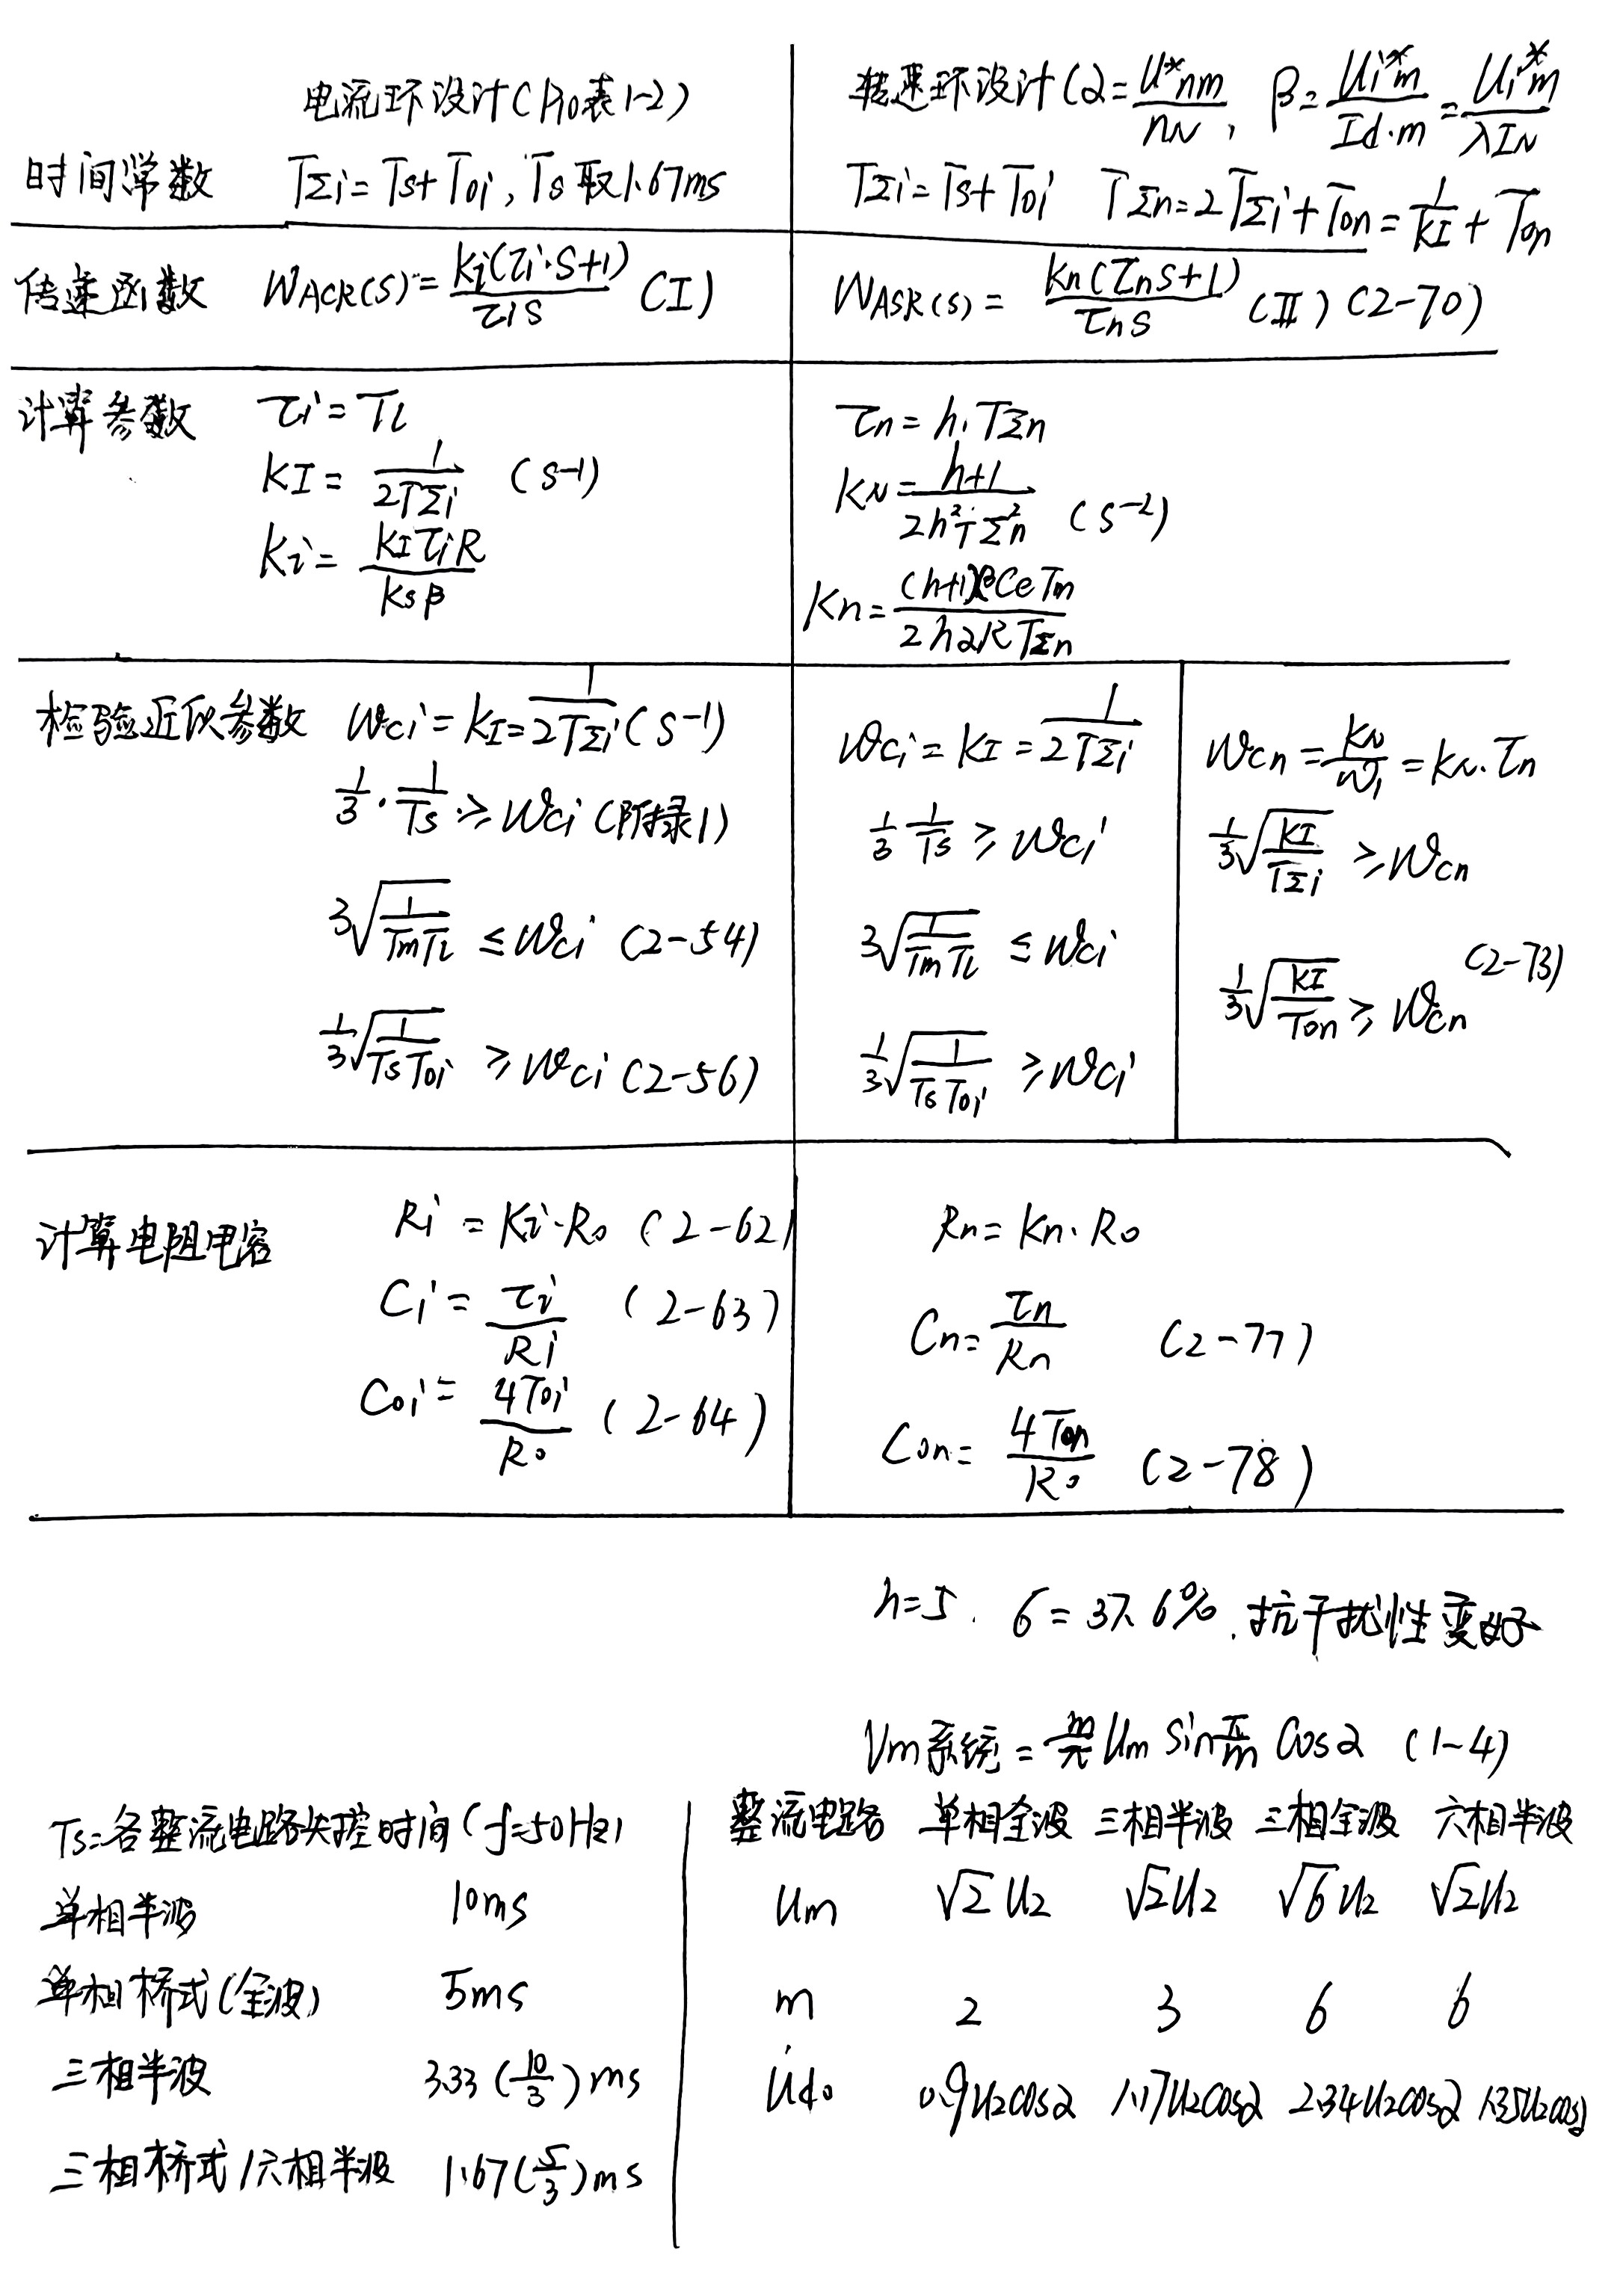 电流环设计(P10表1-2)
转速环设计(α=U*nm/nN, β=Ui*m/Id·m=Ui*m/λIN
时间常数 TΣi=Ts+Toi,Ts取1.67ms
TΣi=Ts+Toi TΣn=2TΣi+Ton=1/KI+Ton
传递函数 WACR(s)=Ki(τi·S+1)/τiS (I)
WASR(s)=Kn(τnS+1)/τnS (II) (2-70)
计算参数 τi=Tl
KI=1/2TΣi (S-1)
Ki=KIτiR/Ksβ
τn=h·TΣn
KN=h+1/2h²T²Σn (S-2)
Kn=(h+1)βCeTm/2hαRTΣn
检验近似参数 Wci=KI=1/2TΣi(S-1)
1/3·1/Ts≥Wci(附录1)
3√1/TmTl≤Wci (2-54)
1/3√1/TsToi≥Wci (2-56)
Wci=KI=1/2TΣi
1/3 1/Ts≥Wci
3√1/TmTl≤Wci
1/3√1/TsToi≥Wci
Wcn=KN/W1=KN·τn
1/3√KI/TΣi≥Wcn
1/3√KI/Ton≥Wcn (2-73)
计算电阻电容 Ri=Ki·Ro (2-62)
Ci=τi/Ri (2-63)
Coi=4Toi/Ro (2-64)
Rn=Kn·Ro
Cn=τn/Rn (2-77)
Con=4Ton/Ro (2-78)
h=5. σ=37.6%.抗干扰性变好
Vm系统=m/π Um Sinπ/m Cosα (1-4)
Ts:各整流电路失控时间(f=50Hz)
单相半波 10ms
单相桥式(全波) 5ms
三相半波 3.33(10/3)ms
三相桥式/六相半波 1.67(5/3)ms
整流电路 单相全波 三相半波 三相全波 六相半波
Um √2U2 √2U2 √6U2 √2U2
m 2 3 6 6
Udo 0.9U2cosα 1.17U2cosα 2.34U2cosα 1.35U2cosα